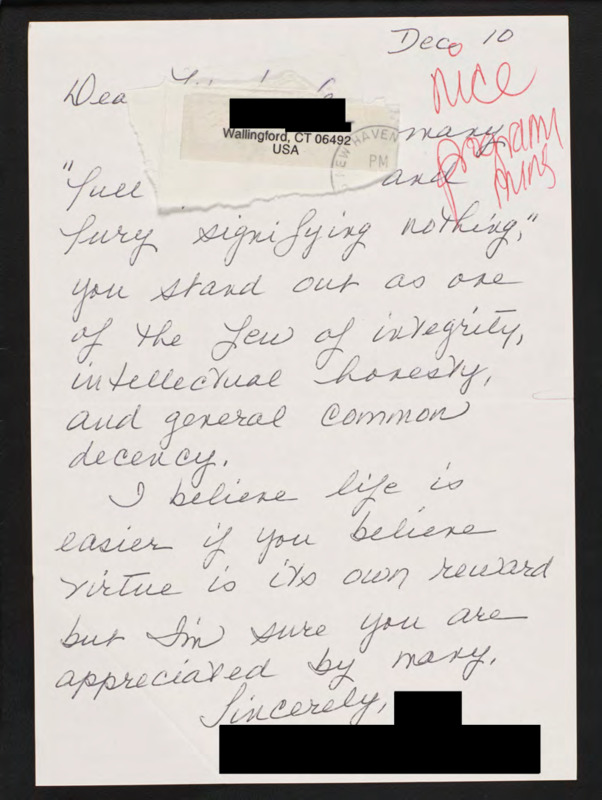 Dec 10
nice
program
Dea
many
Wallingford, CT 06492
USA
NEW HAVEN
PM
"full and
fury signifying nothing,"
you stand out as one
of the few of integrity,
intellectual honesty,
and general common
decency.
I believe life is
easier if you believe
virtue is its own reward
but I'm sure you are
appreciated by many.
Sincerely,